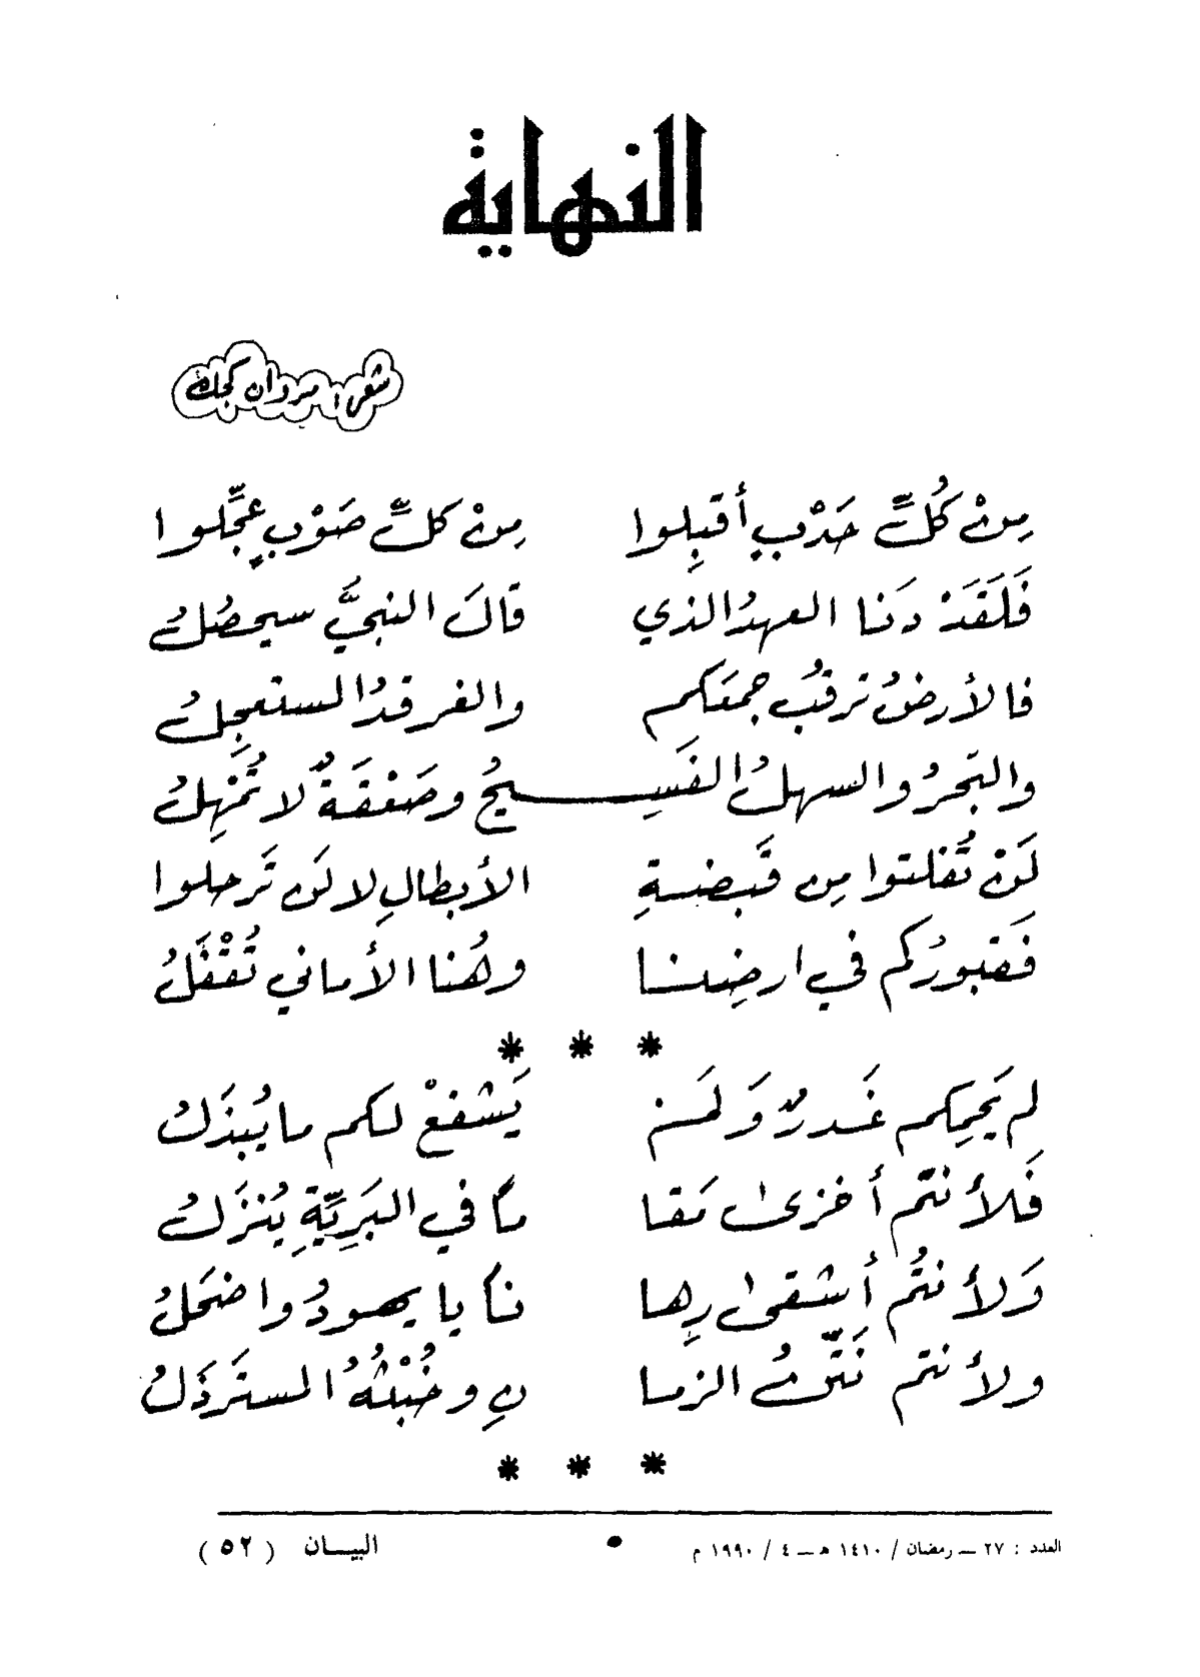 النهاية
شعر: مروان كجك
مِنْ كُلِّ حَدْبٍ أقبِلوا مِنْ كلِّ صَوْبٍ عجِّلوا
فَلَقَدْ دَنا العهدُ الذي قالَ النبيُّ سيحصُلُ
فالأرضُ ترقبُ جمعَكم والغرقدُ المستعجِلُ
والبَحرُ والسهلُ الفَسِيحُ وصَعْقَةٌ لا تُمْهِلُ
لَنْ تُفلتوا مِن قَبضةِ الأبطالِ لا لَن تَرحلوا
فَقبورُكم في ارضِنا وهُنا الأماني تُقْفَلُ
* * *
لم يَحمِكم غَدرٌ وَلَمن يَشفعْ لكم ما يُبذَلُ
فَلأنتم أخزى مَقا مًا في البَرِيَّةِ يُنزَلُ
وَلأنتُم أشقى رِها نًا يا يهودُ واضحَلُ
ولأنتم نَتَنُ الزما نِ وخُبْثُهُ المسترَذَلُ
* * *
العدد : ٢٧ ــ رمضان / ١٤١٠ هـ ــ ٤ / ١٩٩٠ م • البيــان ( ٥٢ )